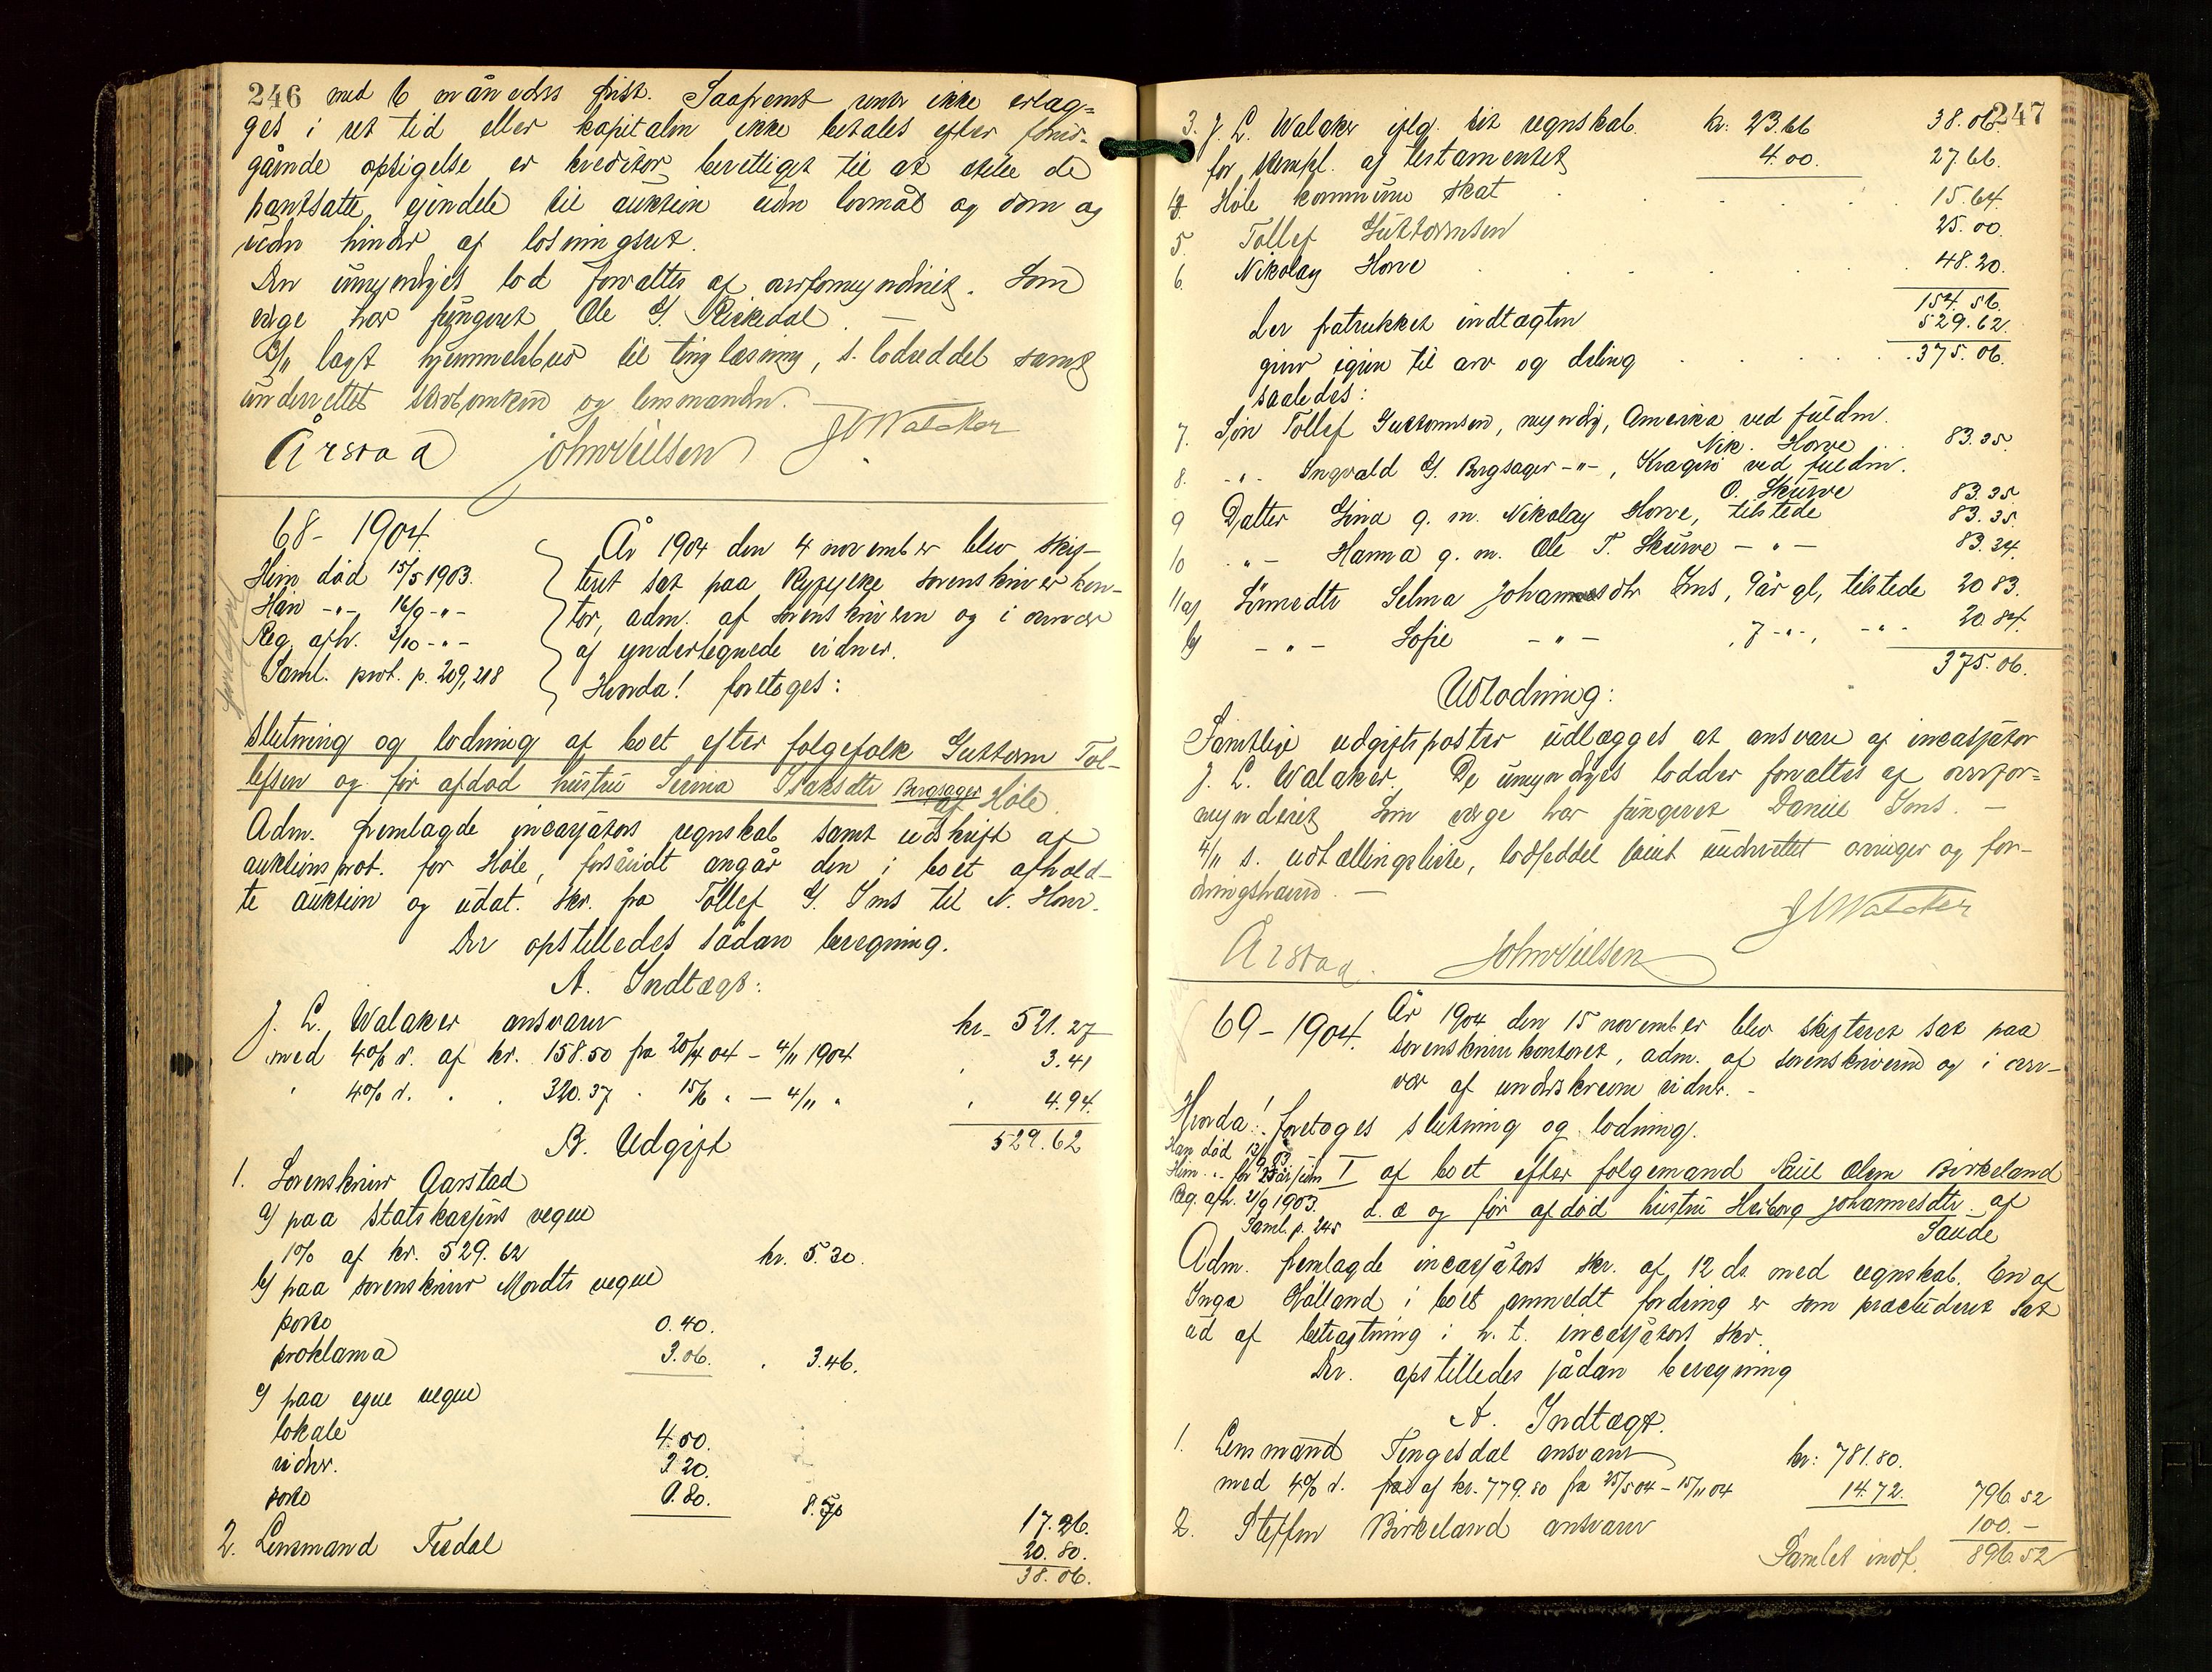 246 med 6 måneders frist. Saafremt renter ikke erlæg=
ges i ret tid eller kapitalen ikke betales efter foru-
gående opsigelse er kreditor berettiget til at stille de
pantsatte eiendele til auktion uden lovmål og dom og
uden hinder af løsningsret.
Den umyndiges lod forvaltes af overformynderiet. Som
værge har fungeret Ole G.
3/11 lagt hjemmelsbrev til tinglæsning, s. lodseddel samt
underrettet og lensmanden.
Årstad John Nielsen J L Walaker
68 - 1904.
Hun død 15/5 1903.
Han -"- 16/9 -"-
Reg. afh. 3/10 -"-
Saml. prot. p. 209, 218
År 1904 den 4 november blev skif-
teret sat paa Ryfylke sorenskriverkon-
tor, adm. af sorenskriveren og i overvær
af undertegnede vidner.
Hvorda! foretoges:
Slutning og lodning af boet efter følgefolk Guttorm Tol-
lefsen og før afdød hustru Serina Isaksdtr Bergsager af Høle.
Adm. fremlagde incassators regnskab samt udskrift af
auktionsprot. for Høle, forsåvidt angår den i boet afhold-
te auktion og udat. skr. fra Tollef G. Ims til N. Howe.
Der opstilledes sådan beregning.
A. Indtægt:
J. L. Walaker ansvarer kr. 521.27
med 4% r. af kr. 158.50 fra 20/4 04 - 4/11 1904 3.41
" 4% r. . . 320.37 . 15/6 " - 4/11 " 4.94.
529.62
B. Udgift
1. Sorenskriver Aarstad
a) paa Statskassens vegne
1% af kr. 529.62 kr. 5.30.
b) paa sorenskriver Mordts vegne
porto 0.40.
proklama 3.06. 3.46.
c) paa egne vegne
lokale 4.50.
vidner. 3.20.
porto 0.80. 8.50
17.26.
2. Lensmand Tisdal 20.80.
38.06.
247
3. J. L. Walaker ifølg. sit regnskab. kr. 23.66 38.06.
for stempl. af testamentet 4.00. 27.66.
4. Høle kommune skat 15.64.
5. Tollef Guttormsen 25.00.
6. Nikolay Howe 48.20.
154.56.
der fratrukket indtægten 529.62.
giver igjen til arv og deling 375.06.
saaledes:
7. Søn Tollef Guttormsen, myndig, Amerika ved fuldm.
Nik. Howe 83.35.
8. -"- Ingvald G. Bergsager -"-, Kragerø ved fuldm.
O. Skurve 83.35
9 Datter Gina g. m. Nikolay Howe, tilstede 83.35.
10 -"- Hanna g. m. Ole T. Skurve -"- 83.34.
11 a) Sønnedtr Selma Johannesdtr Ims, 9 år gl, tilstede 20 83.
b) -"- Sofie -"- , 7 -"-, -"- 20.84.
375.06.
Udlodning:
Samtlige udgiftsposter udlægges at ansvare af incassator
J. L. Walaker. De umyndiges lodder forvaltes af overfor=
mynderiet. Som værge har fungeret Daniel Ims. -
4/11 s. udtællingsliste, lodseddel samt underrettet arvinger og for-
dringshavere. -
J L Walaker
Årstad. John Nielsen
69 - 1904.
År 1904 den 15 november blev skifteret sat paa
sorenskriverkontoret, adm. af sorenskriveren og i over-
vær af underskrevne vidner. -
Hvorda! foretoges slutning og lodning.
Han død 12/9 03
Hun " for 25 år siden
Reg. afh. 21/9 1903.
Saml. p. 245
I af boet efter følgemand Paul Olsen Birkeland
d. æ og før afdød hustru Heiborg Johannesdtr. af
Saude
Adm. fremlagde incassators skr. af 12 ds. med regnskab. En af
Inga Håland i boet anmeldt fordring er som præcluderet sat
ud af betragtning i h. t. incassators skr.
Der. opstilledes sådan beregning
A. Indtægt.
1. Lensmand Tengesdal ansvarer kr: 781.80.
med 4% r. fra af kr. 779.80 fra 25/5 04 - 15/11 04 14.72. 796.52
2. Steffen Birkeland ansvarer 100.-
Samlet indt. 896.52